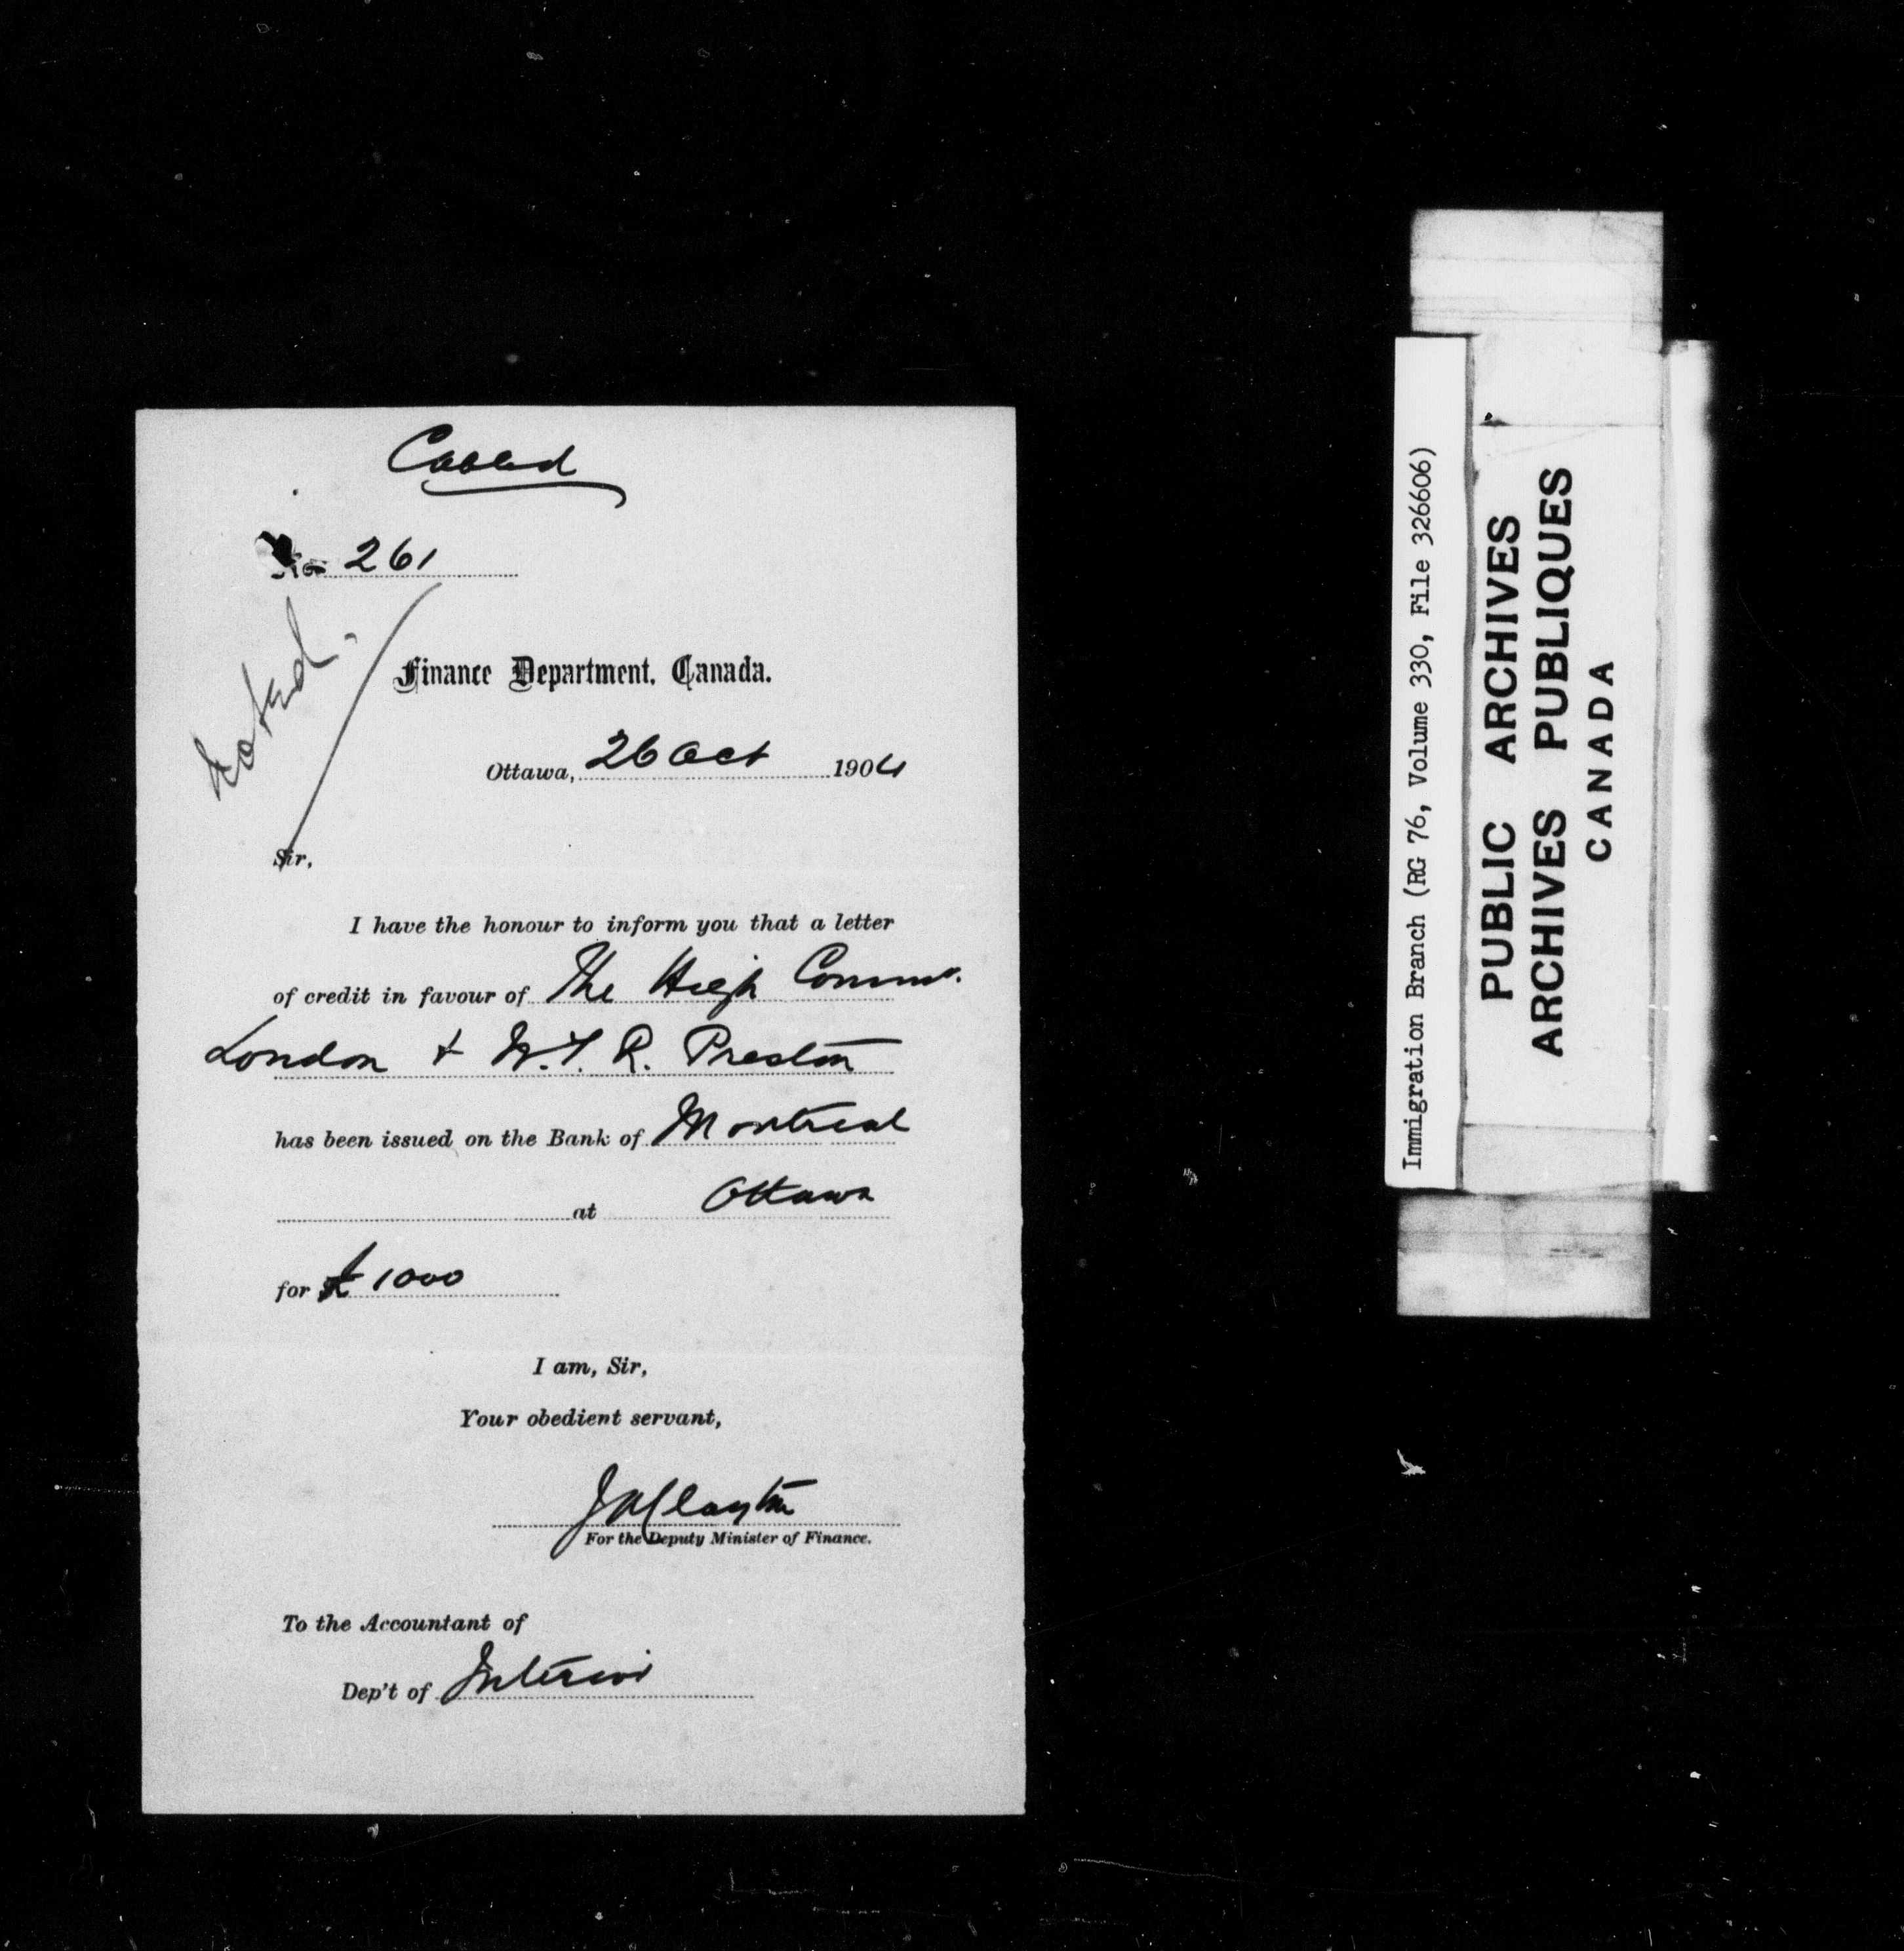 Cabled
No. 261
Noted.
Finance Department, Canada.
Ottawa, 26 Oct 1904
Sir,
I have the honour to inform you that a letter
of credit in favour of The High Commr.
London & W. T. R. Preston
has been issued on the Bank of Montreal
at Ottawa
for £ 1000
I am, Sir,
Your obedient servant,
For the Deputy Minister of Finance.
To the Accountant of
Dep't of Interior
Immigration Branch (RG 76, Volume 330, File 326606)
PUBLIC ARCHIVES
ARCHIVES PUBLIQUES
CANADA